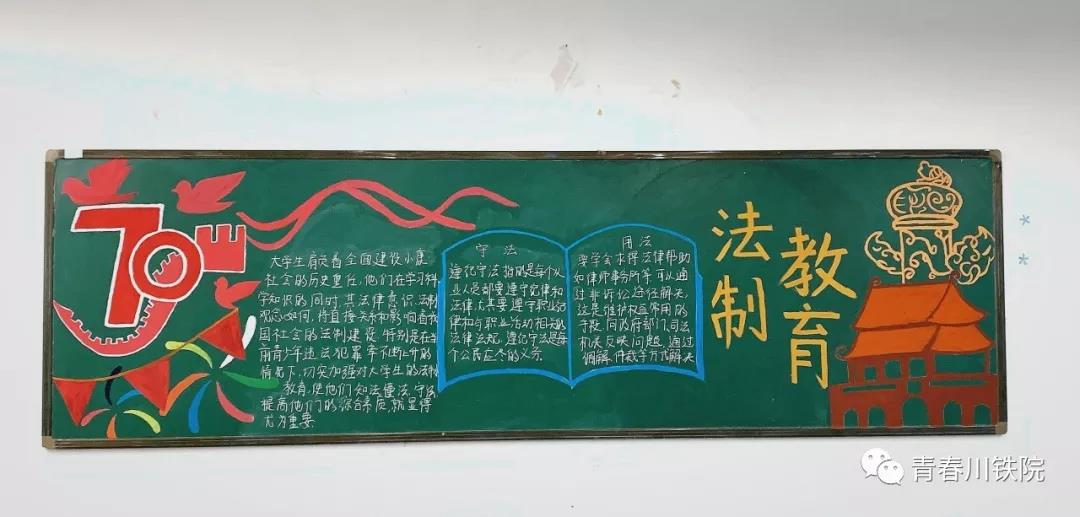 70
大学生肩负着全国建设小康
社会的历史重任,他们在学习科
学知识的同时,其法律意识、法制
观念如何,将直接关系和影响着我
国社会的法制建设,特别是在当
前青少年违法犯罪率不断上升的
情况下,切实加强对大学生的法制
教育,使他们知法懂法、守法
提高他们的综合素质,就显得
尤为重要
守法
遵纪守法指的是每个从
业人员都要遵守纪律和
法律,尤其要遵守职业纪
律和与职业活动相关的
法律法规。遵纪守法是每
个公民应尽的义务
用法
要学会求得法律帮助
如律师事务所等,可以通
过非诉讼途径解决,
这是维护权益常用的
手段,向政府部门、司法
机关反映问题,通过
调解、仲裁等方式解决
法制
教育
青春川铁院